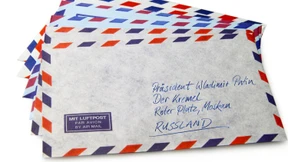 MIT LUFTPOST
PAR AVION
BY AIR MAIL
Präsident Wladimir Putin
Der Kreml
Roter Platz, Moskau
RUSSLAND